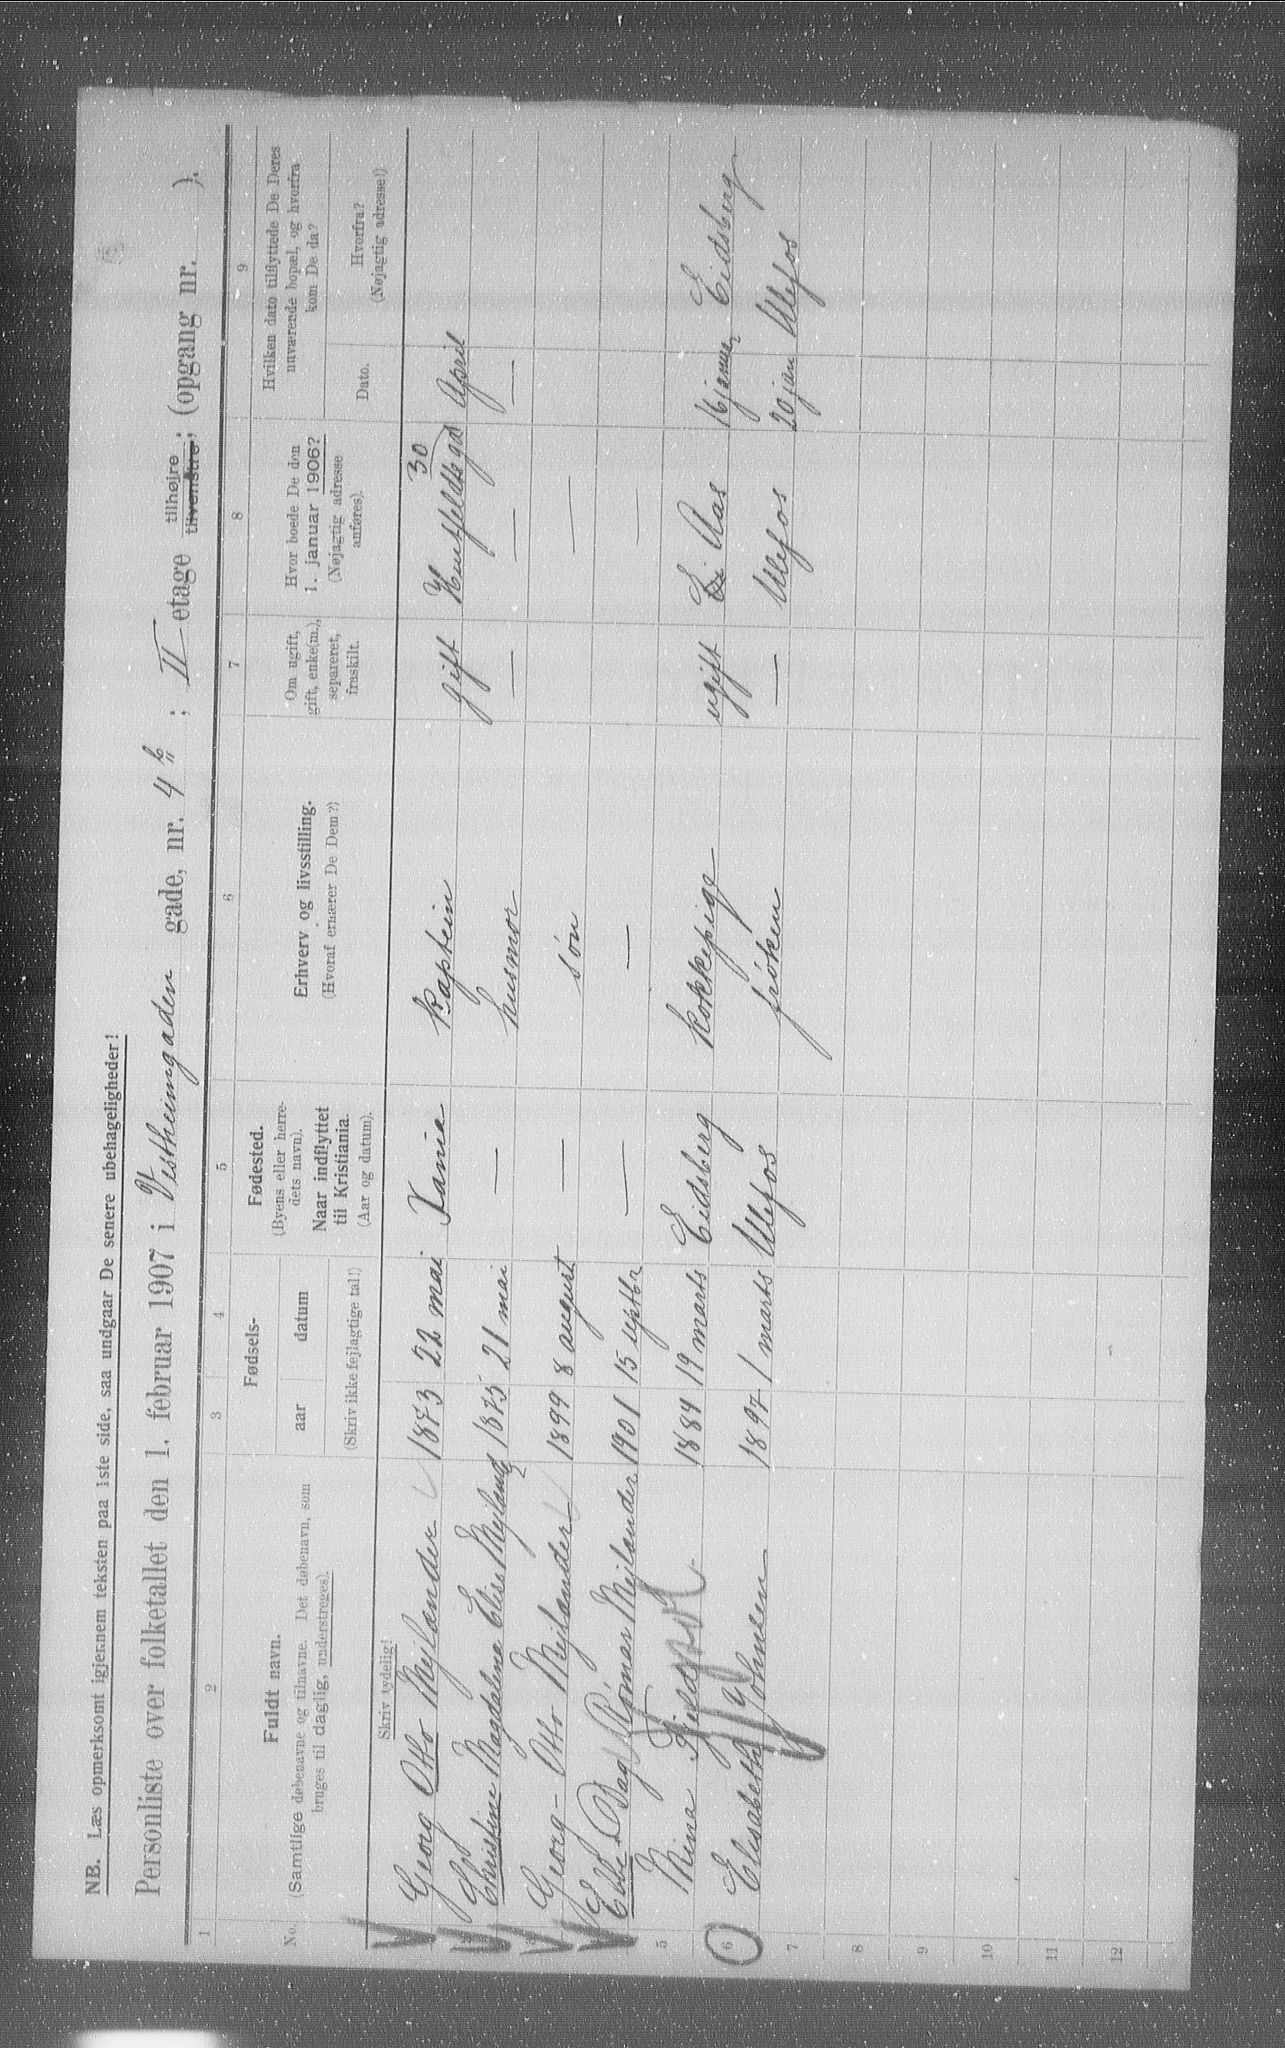 NB. Læs opmerksomt igjennem teksten paa 1ste side, saa undgaar De senere ubehageligheder!
Personliste over folketallet den 1. februar 1907 i Vestheimgaden gade, nr. 4 b; II etage tilhøjre tilvenstre; (opgang nr. ).
1 2 3 4 5 6 7 8 9
No. Fuldt navn. (Samtlige døbenavne og tilnavne. Det døbenavn, som bruges til daglig, understreges). Skriv tydelig!
Fødsels- aar datum (Skriv ikke fejlagtige tal!)
Fødested. (Byens eller herredets navn). Naar indflyttet til Kristiania. (Aar og datum).
Erhverv og livsstilling. (Hvoraf ernærer De Dem?)
Om ugift, gift, enke(m.), separeret, fraskilt.
Hvor boede De den 1. januar 1906? (Nøjagtig adresse anføres).
Hvilken dato tilflyttede De Deres nuværende bopæl, og hvorfra kom De da?
Dato. Hvorfra? (Nøjagtig adresse!)
Georg Otto Mejlænder 1873 22 mai Xania Kaptein gift Huitfeldts gd 30 April
Christine Magdalena Elise Mejlænd 1875 21 mai — husmor — — —
Georg-Otto Mejlænder 1899 8 august — søn —
Ebbe Dag Rømar Mejlænder 1901 15 septbr — — —
5 Mina Fjeld 1884 19 marts Eidsberg Kokkepige ugift Aas 16 januar Eidsberg
6 Elisabeth Johnsen 1897 1 marts Ulefos frøken — Ulefos 20 jan Ulefos
7
8
9
10
11
12